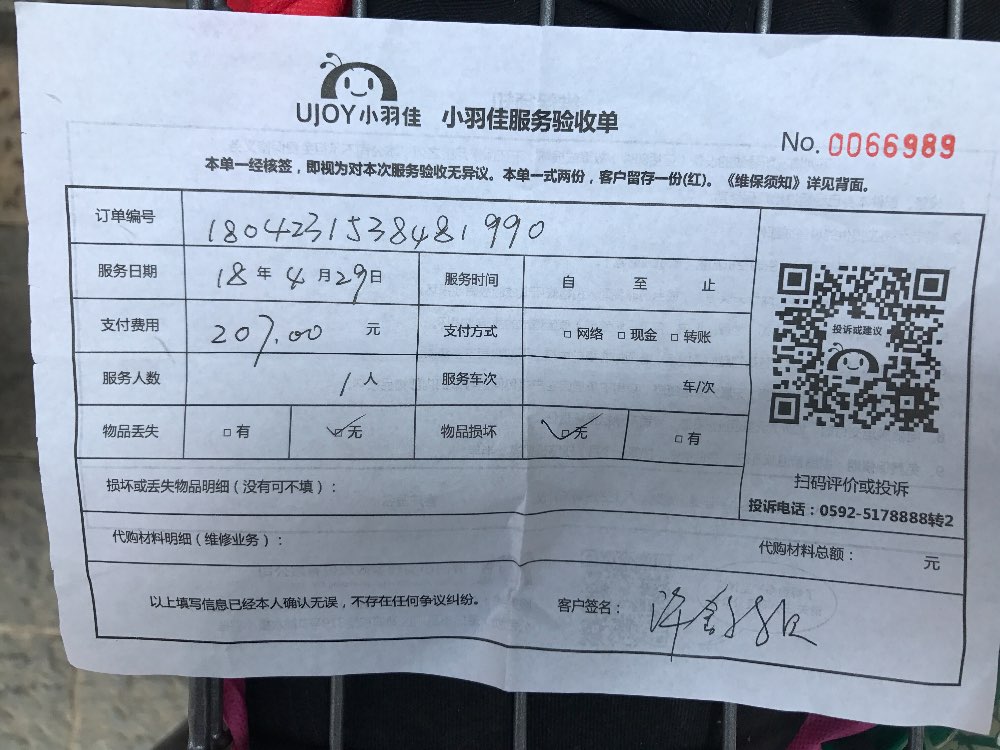 UJOY小羽佳 小羽佳服务验收单
No. 0066989
本单一经核签，即视为对本次服务验收无异议。本单一式两份，客户留存一份(红)。《维保须知》详见背面。
订单编号 1804231538481990
服务日期 18年4月29日 服务时间 自 至 止
支付费用 207.00 元 支付方式 □网络 □现金 □转账
服务人数 1人 服务车次 车/次
物品丢失 □有 □无 物品损坏 □无 □有
投诉或建议
扫码评价或投诉
投诉电话：0592-5178888转2
损坏或丢失物品明细（没有可不填）：
代购材料明细（维修业务）： 代购材料总额： 元
以上填写信息已经本人确认无误，不存在任何争议纠纷。 客户签名：